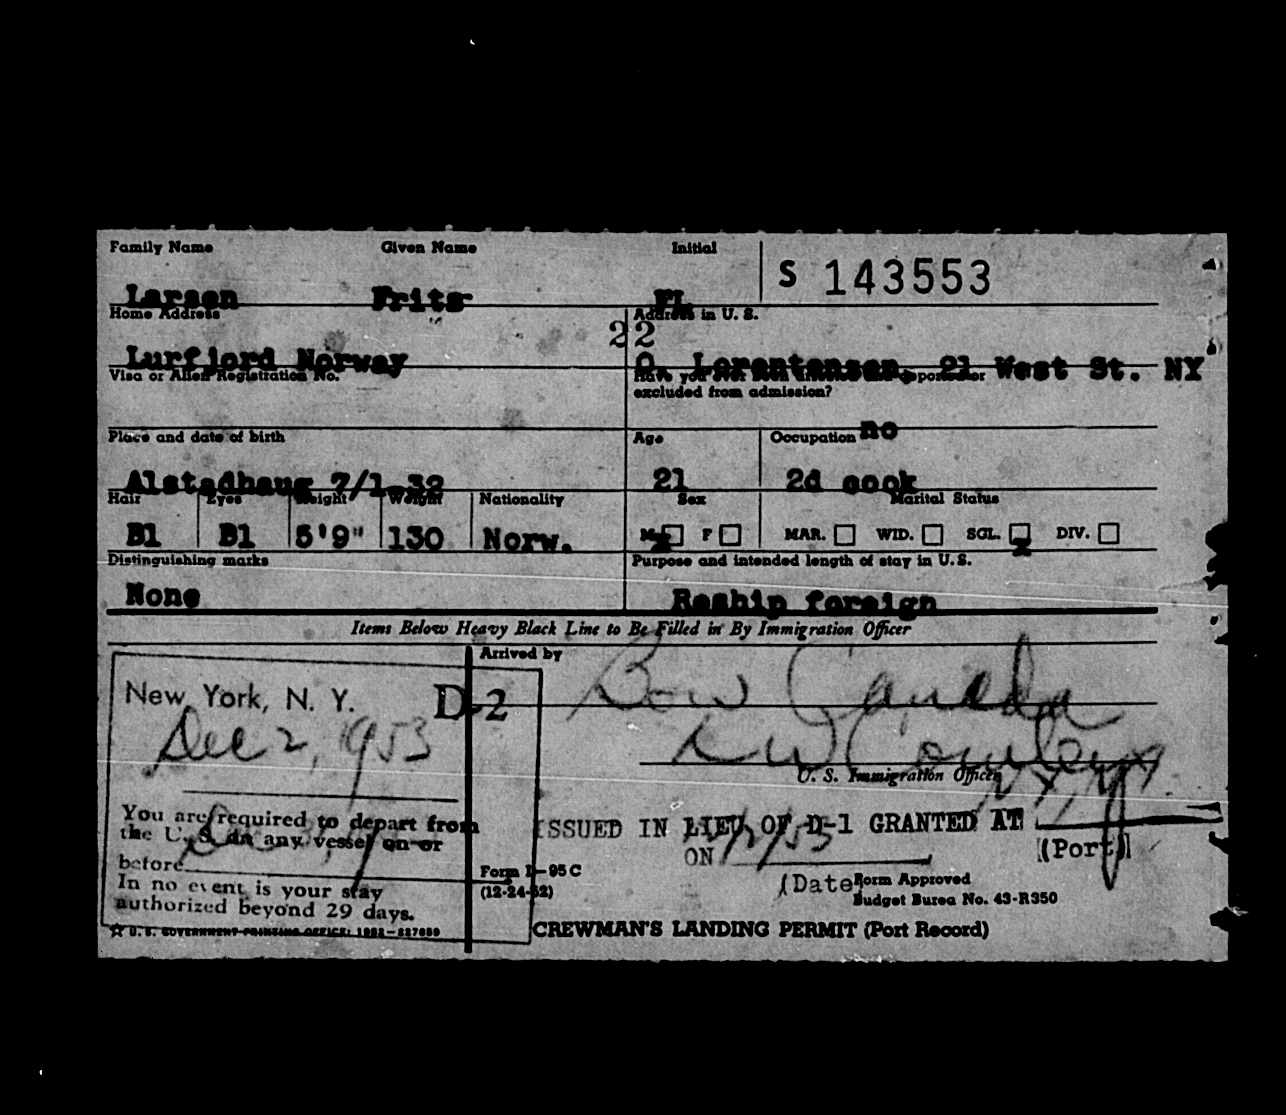 Family Name Given Name Initial
S 143553
Larsen Frits FL
Home Address Address in U. S.
22
Lurfjord Norway O. Lorentensen, 21 West St. NY
Visa or Alien Registration No. Have you ever been
excluded from admission?
no
Place and date of birth Age Occupation
Alstadhaug 7/1-32 21 2d cook
Hair Eyes Height Weight Nationality Sex Marital Status
Bl Bl 5'9" 130 Norw. M F MAR. WID. SGL. DIV.
Distinguishing marks Purpose and intended length of stay in U.S.
None Reship foreign
Items Below Heavy Black Line to Be Filled in By Immigration Officer
Arrived by
New York, N. Y. D-2 Bow Canada
Dec 2, 1953
U. S. Immigration Officer
You are required to depart from
the U. S. on any vessel on or
before
In no event is your stay
authorized beyond 29 days.
ISSUED IN LIEU OF D-1 GRANTED AT
ON 12/2/53 (Port)
(Date)
Form I-95C
(12-24-52)
Form Approved
Budget Bureau No. 43-R350
☆ U. S. GOVERNMENT PRINTING OFFICE: 1952
CREWMAN'S LANDING PERMIT (Port Record)